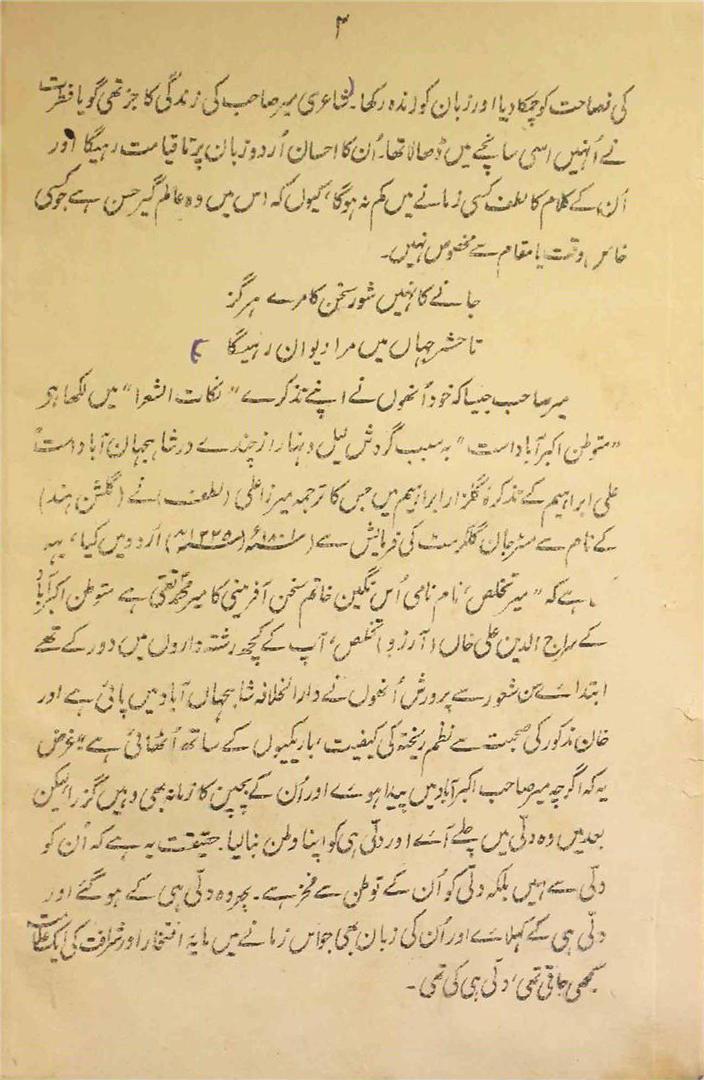 ۳
کی فصاحت کو چمکا دیا اور زبان کو زندہ رکھا۔ شاعری میر صاحب کی زندگی کا جز تھی گویا فطرت
نے اُنہیں اسی سانچے میں ڈھالا تھا۔ اُن کا احسان اُردو زبان پر تا قیامت رہیگا اور
اُن کے کلام کا لطف کسی زمانے میں کم نہ ہوگا، کیوں کہ اس میں وہ عالم گیر حسن ہے جو کسی
خاص وقت یا مقام سے مخصوص نہیں۔
جانے کا نہیں شور سخن کا مرے ہرگز
تا حشر جہاں میں مرا دیوان رہیگا
میر صاحب جیسا کہ خود اُنھوں نے اپنے تذکرے "نکات الشعرا" میں لکھا ہو
"متوطن اکبرآباد است" بہ سبب گردش لیل و نہار از چندے در شاہجہان آباد است"
علی ابراہیم کے تذکرۂ گلزار ابراہیم میں جس کا ترجمہ میرزا علی (لطف) نے (گلشن ہند)
کے نام سے مسٹر جان گلکرسٹ کی فرمایش سے (۱۸۰۱ء ۱۲۲۵ھ) اُردو میں کیا، یہہ
ہے کہ "میر تخلص، نام نامی اُس نگین خاتم سخن آفرینی کا میر محمد تقی ہے متوطن اکبرآباد
کے سراج الدین علی خاں (آرزو) تخلص، آپ کے کچھ رشتہ داروں میں دور کے تھے
ابتداے سن شعور سے پرورش اُنھوں نے دارالخلافۂ شاہجہاں آباد میں پائی ہے اور
خان مذکور کی صحبت سے نظم ریختہ کی کیفیت، باریکیوں کے ساتھ اُٹھائی ہے" غرض
یہ کہ اگرچہ میر صاحب اکبرآباد میں پیدا ہوے اور اُن کے بچپن کا زمانہ بھی وہیں گزرا لیکن
بعد میں وہ دلّی میں چلے آے اور دلّی ہی کو اپنا وطن بنا لیا۔ حقیقت یہ ہے کہ اُن کو
دلّی سے نہیں بلکہ دلّی کو اُن کے توطن سے فخر ہے۔ پھر وہ دلّی ہی کے ہو گئے اور
دلّی ہی کے کہلاے اور اُن کی زبان بھی جو اس زمانے میں مایۂ افتخار اور شرافت کی ایک علامت
سمجھی جاتی تھی، دلّی ہی کی تھی۔